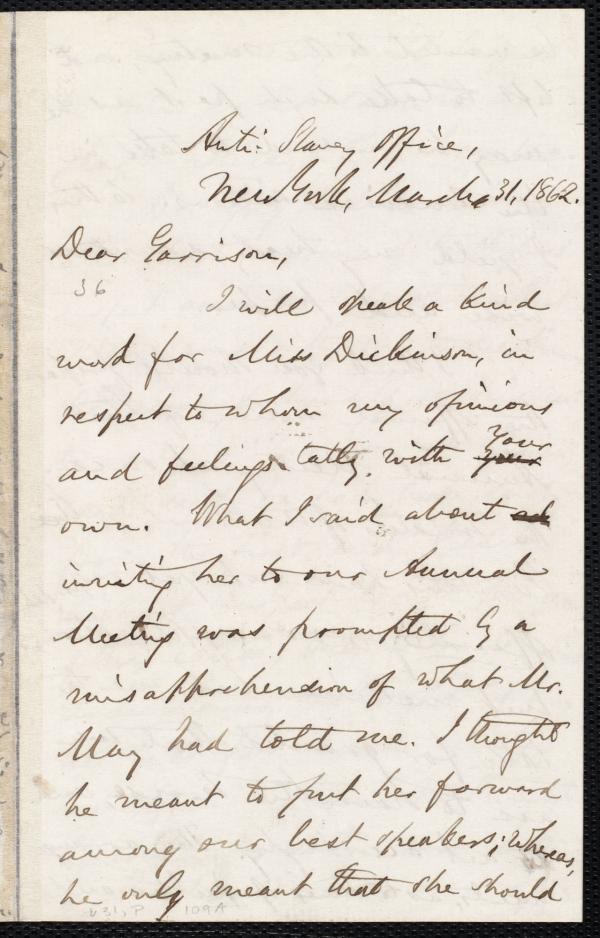 Anti-Slavery Office,
New York, March 31, 1862.
Dear Garrison,
36
I will speak a kind
word for Miss Dickinson, in
respect to whom my opinions
and feelings tally with your
own. What I said about
inviting her to our Annual
Meeting was prompted by a
misapprehension of what Mr.
May had told me. I thought
he meant to put her forward
among our best speakers; whereas,
he only meant that she should
v.31, P 109A